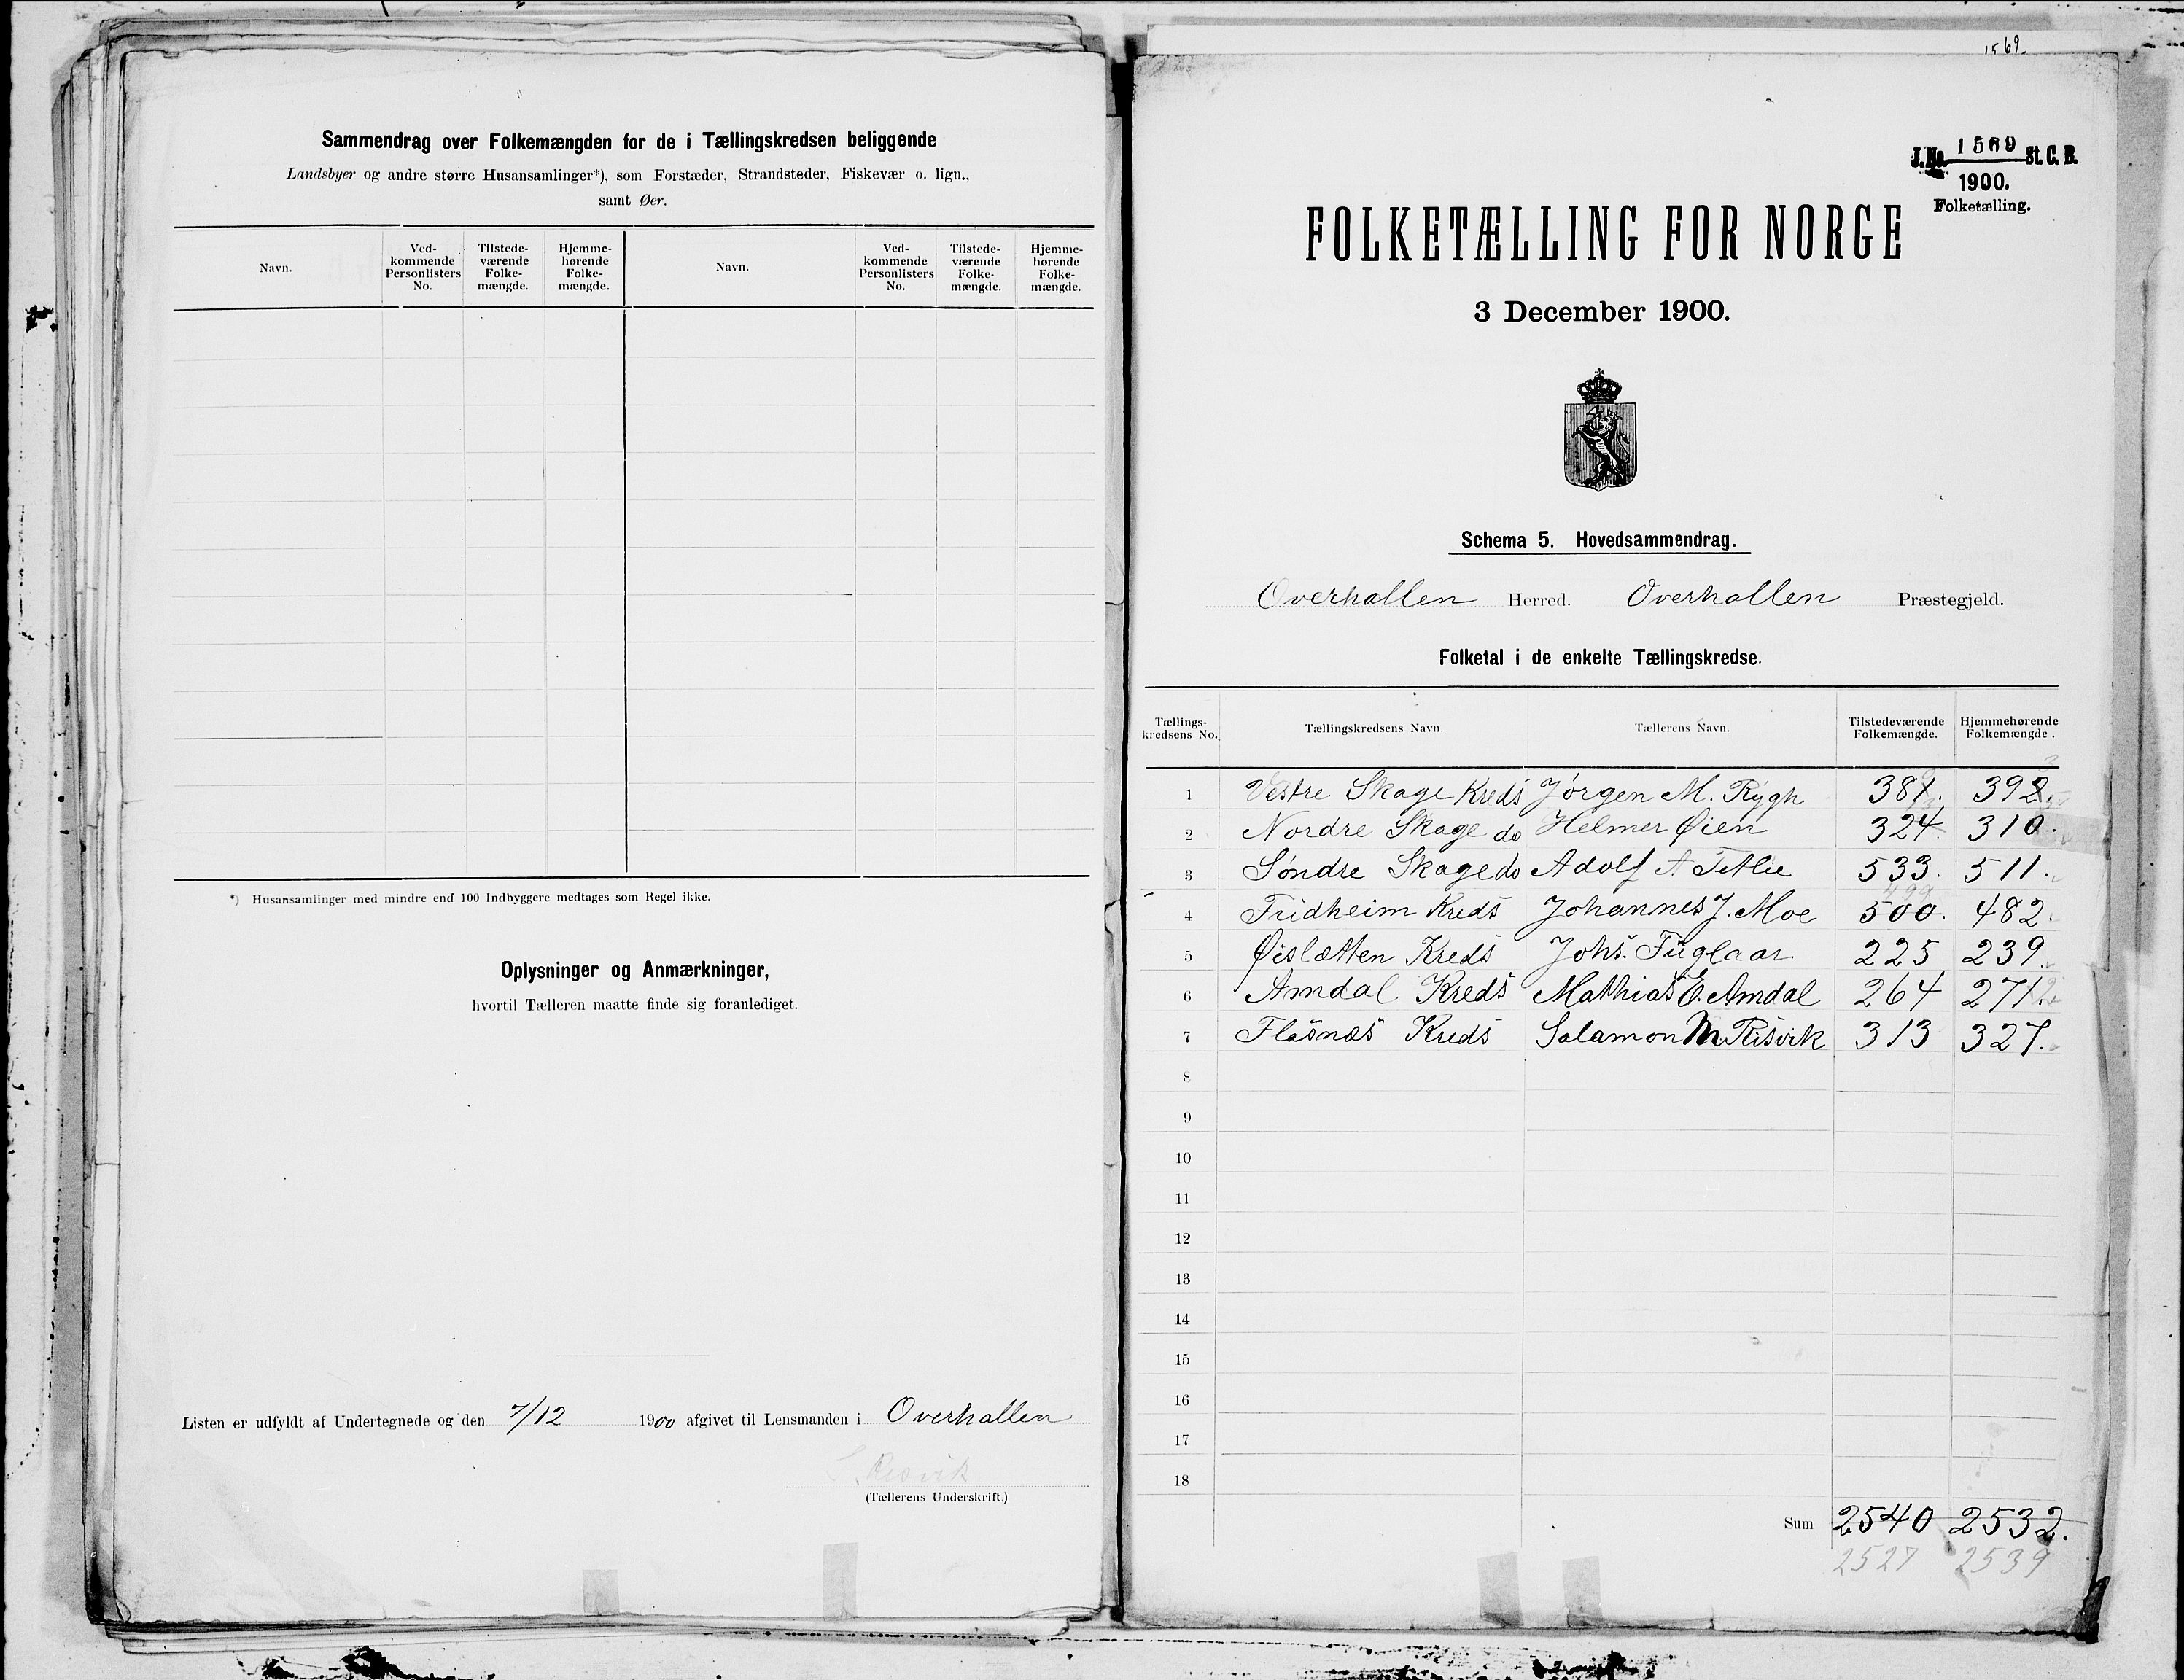 Sammendrag over Folkemængden for de i Tællingskredsen beliggende
Landsbyer og andre større Husansamlinger*), som Forstæder, Strandsteder, Fiskevær o. lign.,
samt Øer.
Navn. Ved-kommende Personlisters No. Tilstede-værende Folke-mængde. Hjemme-hørende Folke-mængde. Navn. Ved-kommende Personlisters No. Tilstede-værende Folke-mængde. Hjemme-hørende Folke-mængde.
*) Husansamlinger med mindre end 100 Indbyggere medtages som Regel ikke.
Oplysninger og Anmærkninger,
hvortil Tælleren maatte finde sig foranlediget.
Listen er udfyldt af Undertegnede og den 7/12 1900 afgivet til Lensmanden i Overhallen
S. Risvik
(Tællerens Underskrift.)
1569
J.No. 1569 St. C. B.
1900.
Folketælling.
FOLKETÆLLING FOR NORGE
3 December 1900.
Schema 5. Hovedsammendrag.
Overhallen Herred. Overhallen Præstegjeld.
Folketal i de enkelte Tællingskredse.
Tællings-kredsens No. Tællingskredsens Navn. Tællerens Navn. Tilstedeværende Folkemængde. Hjemmehørende Folkemængde.
1 Vestre Skage Kreds Jørgen M. Rygh 381. 392.
2 Nordre Skage do Helmer Øien 324. 310.
3 Søndre Skage do Adolf A Tetlie 533. 511.
499
4 Fridheim Kreds Johannes J. Moe 500. 482.
5 Øisletten Kreds Johs. Fuglaar 225 239
6 Amdal Kreds Mathias E. Amdal 264 271
7 Flasnæs Kreds Salamon M Risvik 313 327.
8
9
10
11
12
13
14
15
16
17
18
Sum 2540 2532.
2527 2539